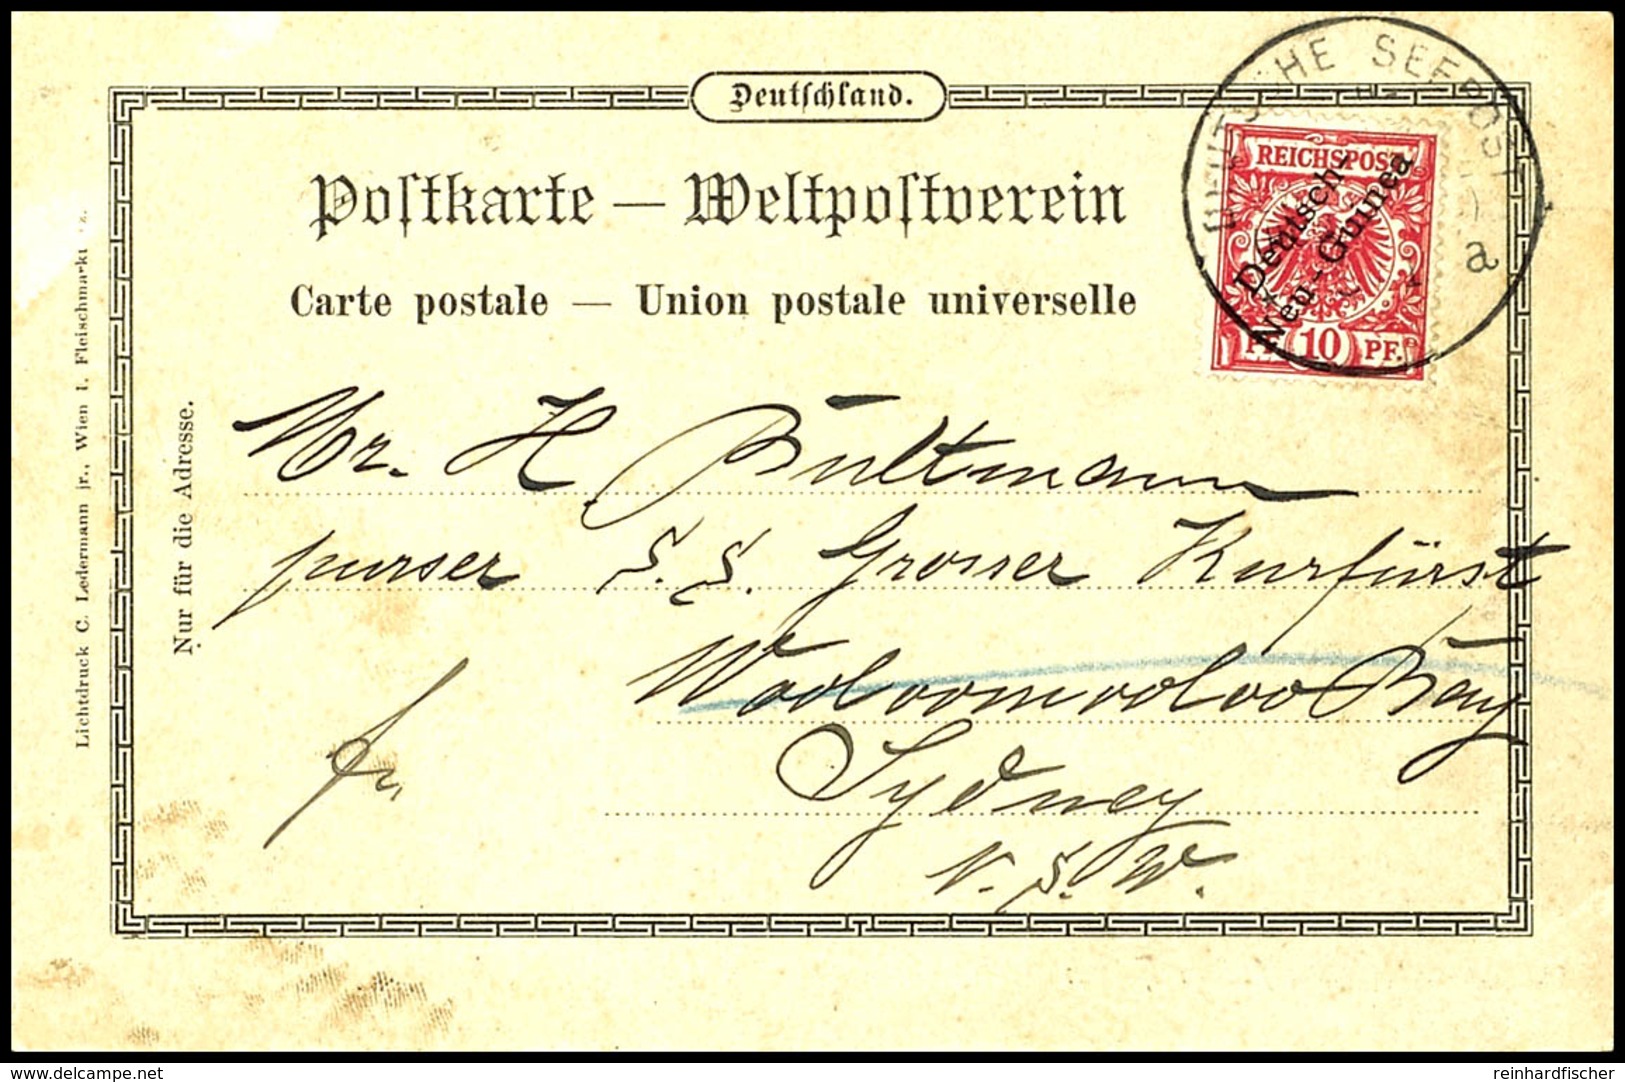 Deutschland.
DEUTSCHE SEEPOST
a
REICHSPOST
Deutsch-
Neu-Guinea
PF. 10 PF.
Postkarte — Weltpostverein
Carte postale — Union postale universelle
Mr. H Bültmann
purser S.S. Grosser Kurfürst
Wooloomooloo Bay
Sydney
N.S.W.
Nur für die Adresse.
Lichtdruck C. Ledermann jr., Wien I. Fleischmarkt
delcampe.net
reinhardfischer